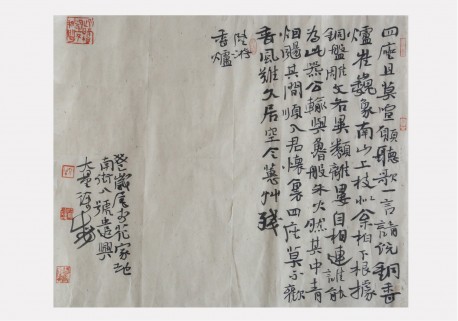 四座且莫喧願聽歌一言請説銅香
爐崔巍象南山上枝似松柏下根據
銅盤雕文各異類離婁自相連誰能
為此器公輸與魯般朱火然其中青
烟颺其間順入君懷裏四座莫不歡
香風難久居空令蕙艸殘
香爐
歲尾於花家地
南街八號遣興